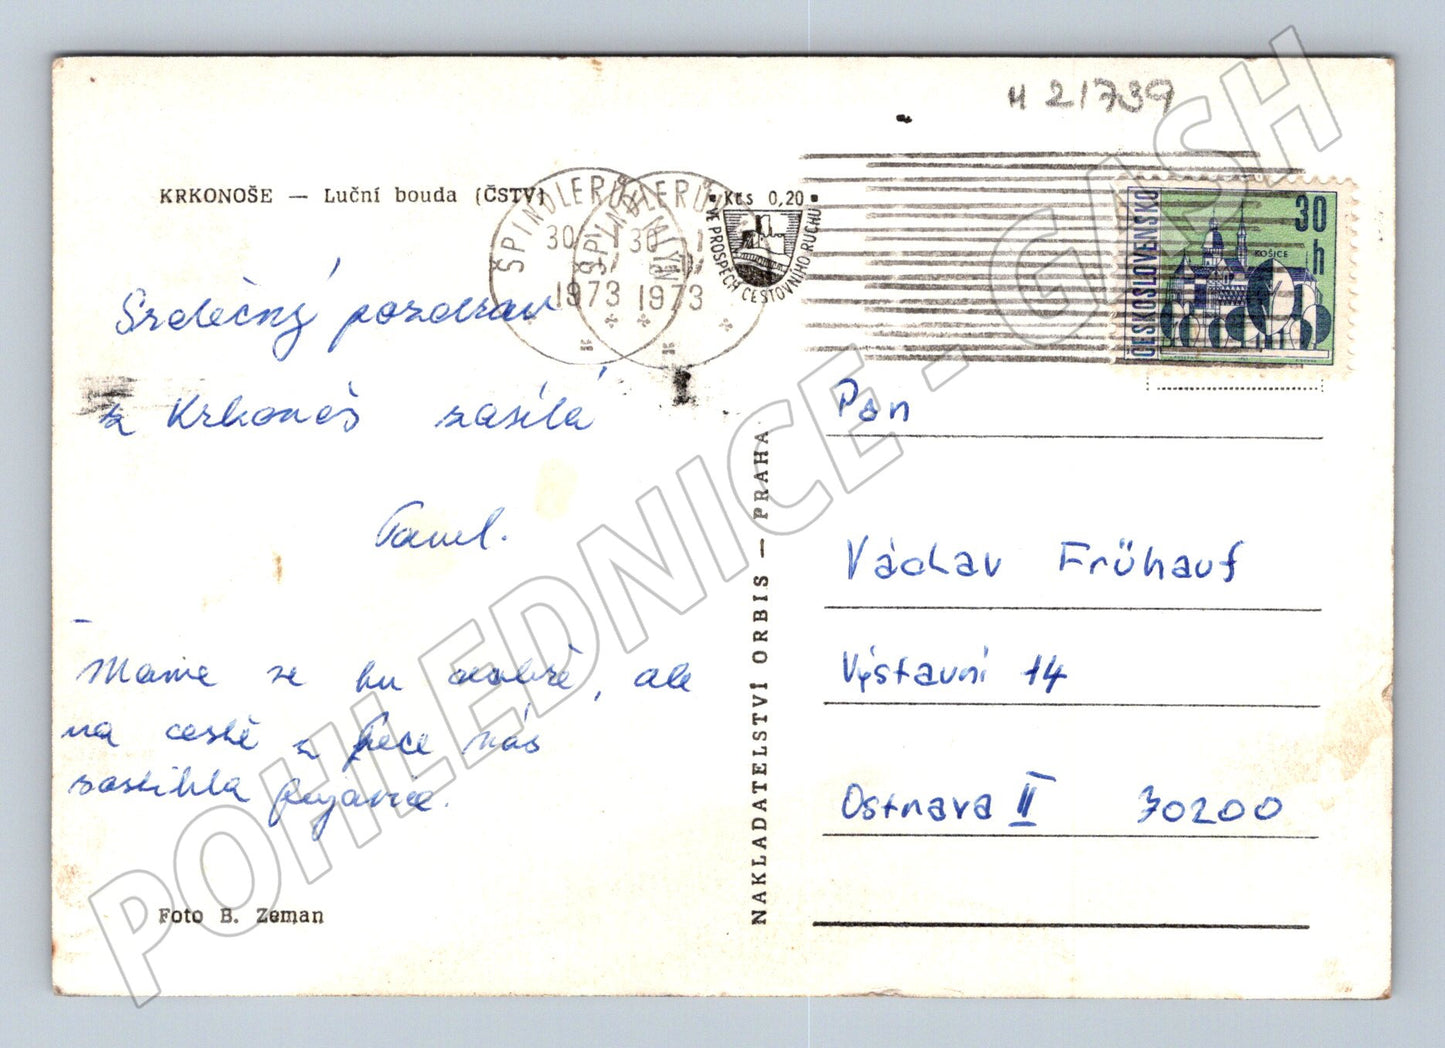 H 21739
KRKONOŠE — Luční bouda (ČSTV)
ŠPINDLERŮV MLÝN
30 1
1973
ŠPINDLERŮV MLÝN
30 1
1973
Kčs 0,20
VE PROSPĚCH CESTOVNÍHO RUCHU
ČESKOSLOVENSKO
30 h
KOŠICE
Srdečný pozdrav
z Krkonoš zasílá
Pavel.
Máme se tu dobře, ale
na cestě z
nás
zastihla
Foto B. Zeman
NAKLADATELSTVÍ ORBIS — PRAHA
Pan
Václav Frühauf
Výstavní 14
Ostrava II 70200
POHLEDNICE - GASH